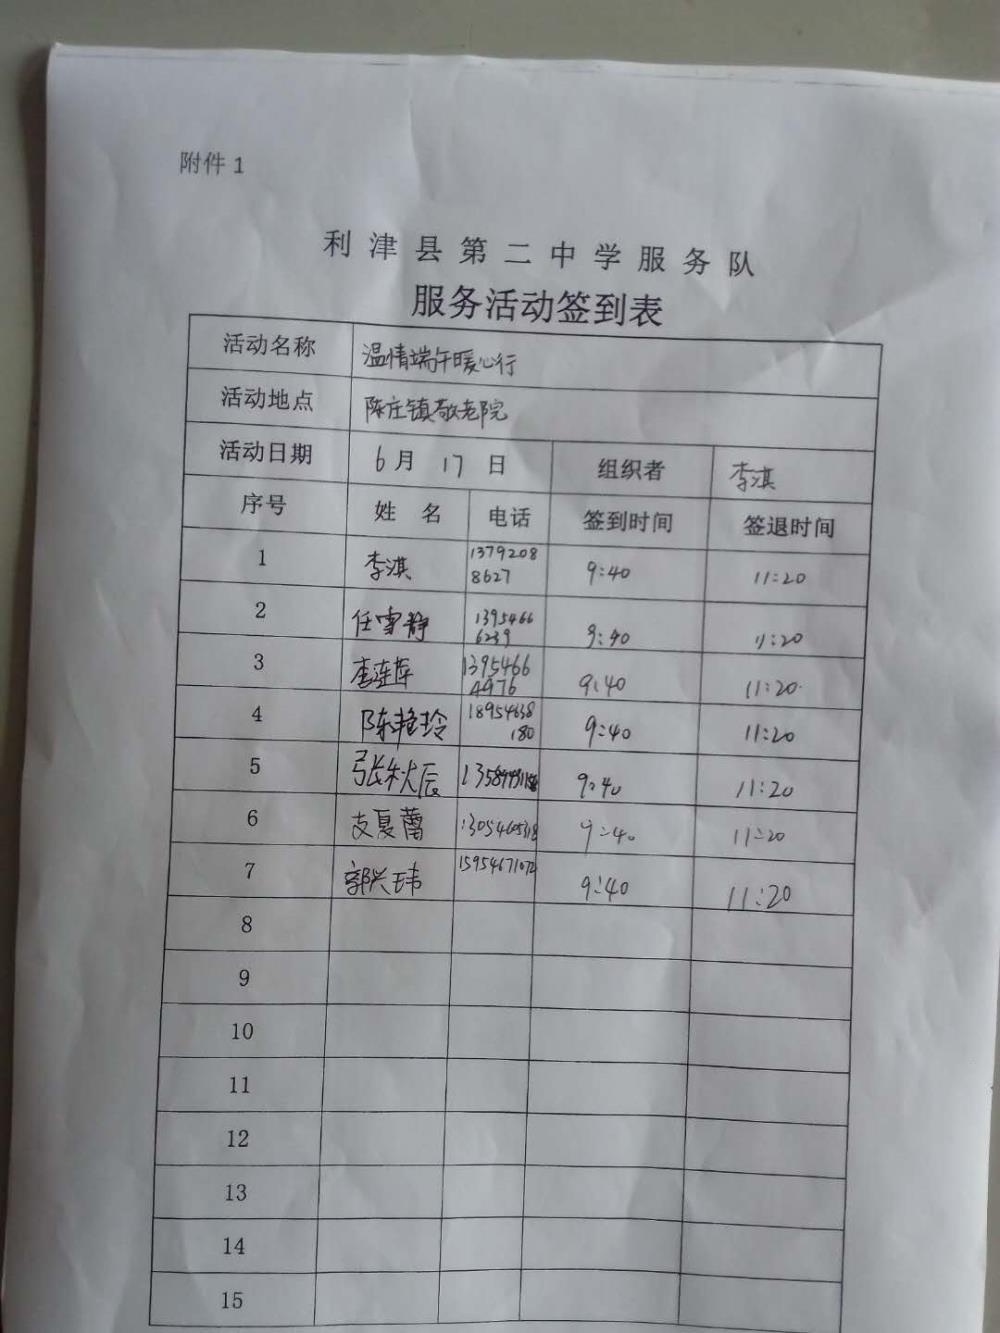 附件 1
利津县第二中学服务队
服务活动签到表
活动名称 温情端午暖心行
活动地点 陈庄镇敬老院
活动日期 6月 17 日 组织者 李淇
序号 姓 名 电话 签到时间 签退时间
1 李淇 1379208 8627 9:40 11:20
2 任雪静 1395466 6239 9:40 11:20
3 李连萍 1395466 4976 9:40 11:20
4 陈艳玲 18954638 180 9:40 11:20
5 张秋辰 9:40 11:20
6 支夏蕾 13054605318 9:40 11:20
7 郭兴玮 15954671072 9:40 11:20
8
9
10
11
12
13
14
15